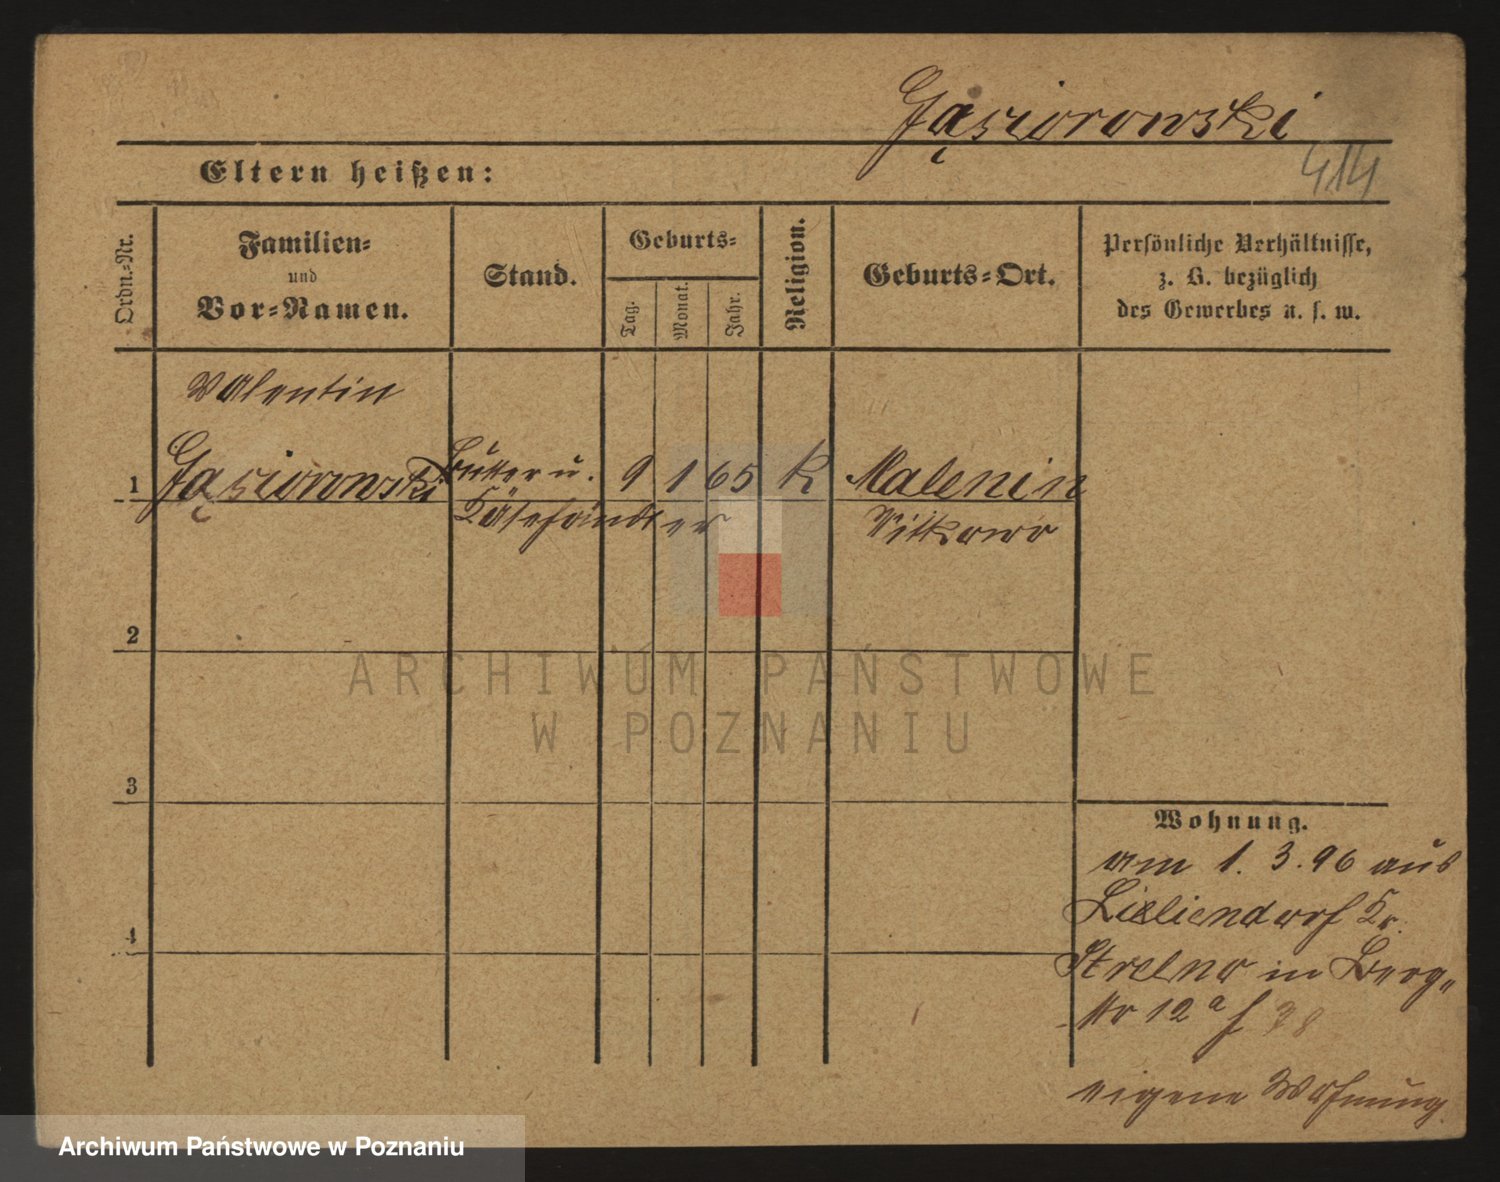 Gąsiorowski
414
Eltern heißen:
Ordn.-Nr.
Familien-
und
Vor-Namen.
Stand.
Geburts-
Tag.
Monat.
Jahr.
Religion.
Geburts-Ort.
Persönliche Verhältnisse,
z. B. bezüglich
des Gewerbes u. s. w.
Valentin
1 Gąsiorowski Butter u. 9 1 65 K Malenin
Käsehändler Witkowo
2
3
4
Wohnung.
am 1. 3. 96 aus
Liliendorf Kr.
Strelno in Berg-
str 12a
eigene Wohnung.
ARCHIWUM PAŃSTWOWE
W POZNANIU
Archiwum Państwowe w Poznaniu